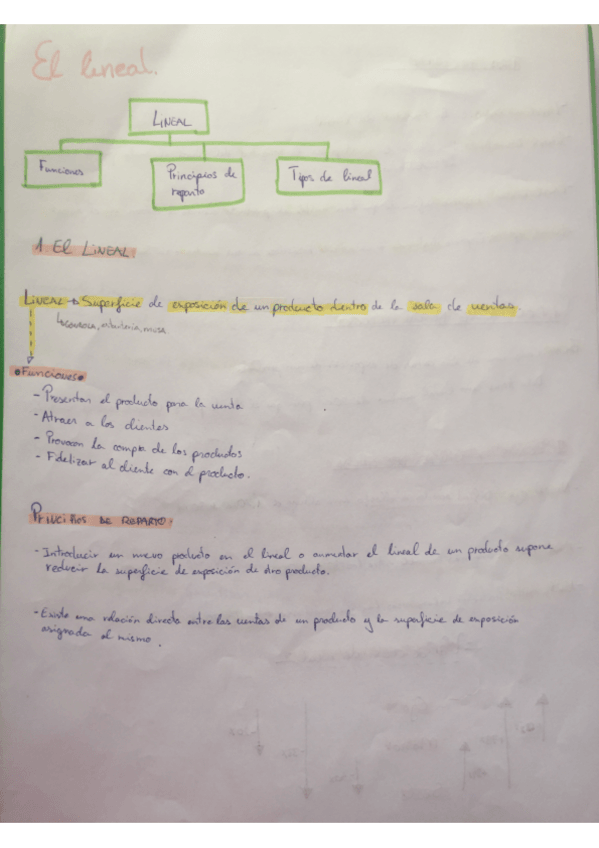 El lineal.
LINEAL
Funciones
Principios de
reparto
Tipos de lineal
1 EL LINEAL.
LINEAL → Superficie de exposición de un producto dentro de la sala de ventas.
↳ GONDOLA, estantería, mesa.
• Funciones •
- Presentar el producto para la venta
- Atraer a los clientes
- Provocar la compra de los productos
- Fidelizar al cliente con el producto.
PRINCIPIOS DE REPARTO.
- Introducir un nuevo producto en el lineal o aumentar el lineal de un producto supone
reducir la superficie de exposición de otro producto.
- Existe una relación directa entre las ventas de un producto y la superficie de exposición
asignada al mismo.